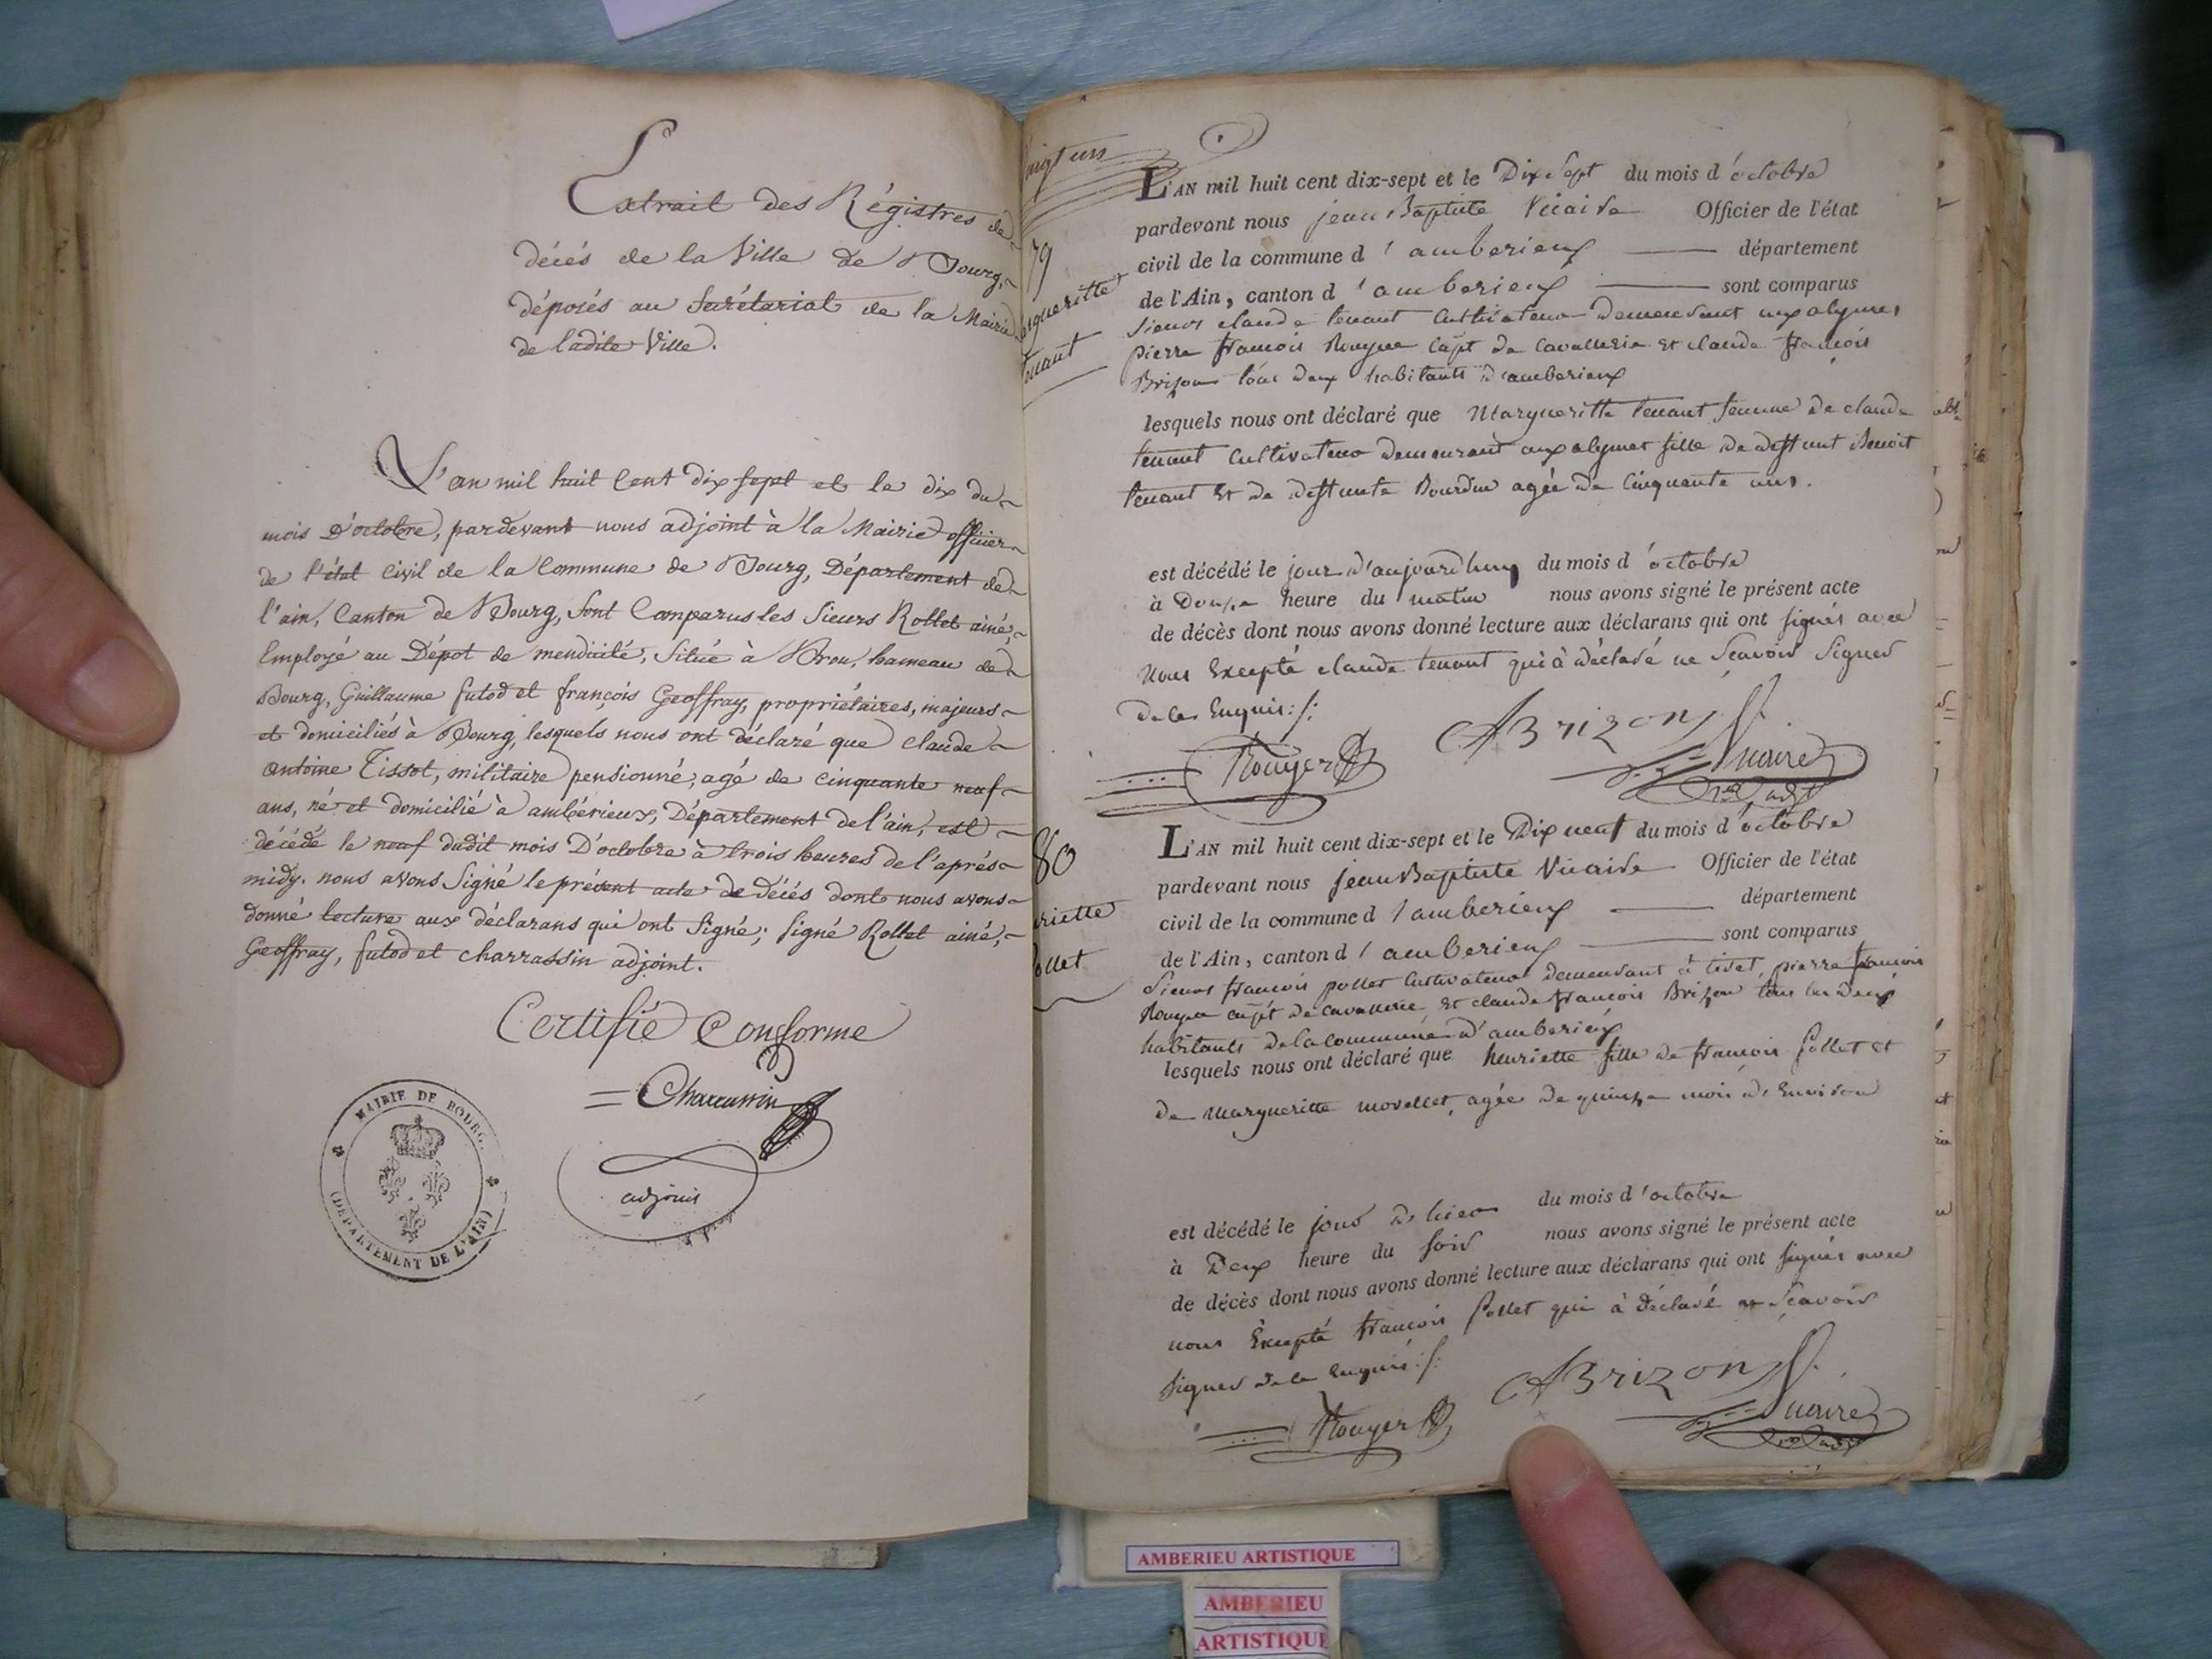 Extrait des Régistres de
décés de la Ville de Bourg,
déposés au Secrétariat de la Mairie
de ladite Ville.
L'an mil huit cent dix sept et le dix du
mois D'octobre, pardevant nous adjoint à la Mairie officier
de l'état civil de la Commune de Bourg, Département de
l'ain, Canton de Bourg, sont Comparus les Sieurs Rollet ainé,
Employé au Dépot de mendicité, Situé à Brou, hameau de
Bourg, Guillaume futod et françois Geoffray, propriétaires, majeurs
et domiciliés à Bourg, lesquels nous ont déclaré que claude
antoine Tissot, militaire pensionné, agé de cinquante neuf
ans, né et domicilié à ambérieux, Département de l'ain, est
décédé le neuf dudit mois D'octobre à trois heures de l'après
midy. nous avons Signé le présent acte de décés dont nous avons
donné lecture aux déclarans qui ont Signé; signé Rollet ainé,
Geoffray, futod et charrassin adjoint.
Certifié Conforme
Charrassin
adjoint
MAIRIE DE BOURG.
(DEPARTEMENT DE L'AIN)
79
argueritte
enant
L'AN mil huit cent dix-sept et le Dix Sept du mois d'octobre
pardevant nous jean Baptiste Vicaire Officier de l'état
civil de la commune d'amberieux département
de l'Ain, canton d'amberieux sont comparus
Sieurs claude tenant Cultivateur Demeurant aux alymes
pierre francois Rouyer Capt de Cavallerie et claude francois
Brizon tous deux habitants d'amberieux
lesquels nous ont déclaré que Margueritte tenant femme de claude
tenant Cultivateur Demeurant aux alymes fille de deffunt Benoit
tenant Et de deffunte Bourdin agée de Cinquante ans.
est décédé le jour d'aujourdhuy du mois d'octobre
à Douze heure du matin nous avons signé le présent acte
de décès dont nous avons donné lecture aux déclarans qui ont signés avec
Nous Excepté claude tenant qui à déclaré ne Scavoir Signer
De ce Enquis :/:
Rouyer
CF Brizon
Vicaire
80
riette
ollet
L'AN mil huit cent dix-sept et le Dix neuf du mois d'octobre
pardevant nous jean Baptiste Vicaire Officier de l'état
civil de la commune d'amberieux département
de l'Ain, canton d'amberieux sont comparus
Sieurs francois pollet Cultivateur demeurant à tiret, pierre francois
Rouyer capt de cavallerie et claude francois Brizon tous les Deux
habitants de la commune d'amberieux
lesquels nous ont déclaré que henriette fille de francois pollet et
de margueritte morellet, agée de quinze mois d'Environ
est décédé le jour d'hier du mois d'octobre
à Deux heure du soir nous avons signé le présent acte
de décès dont nous avons donné lecture aux déclarans qui ont signés avec
nous Excepté francois pollet qui à déclaré ne Scavoir
signer de ce Enquis :/:
Rouyer
CF Brizon
Vicaire
AMBERIEU ARTISTIQUE
AMBERIEU
ARTISTIQUE